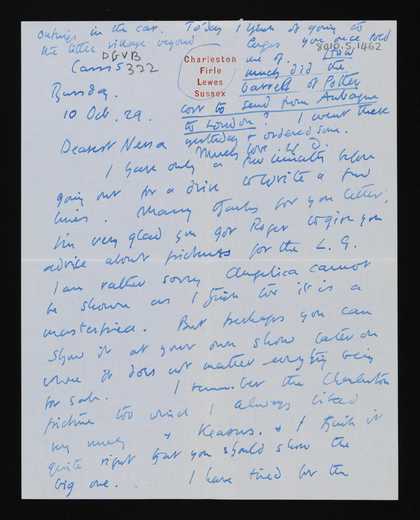 outings in the car. Today I think of going to
the little village beyond
Cassis
DGVB
322
Charleston
Firle
Lewes
Sussex
8010.5.1462
you once told
me of. How
much did the
barrels of Pottery
cost to send from Aubagne
to London? I went there
yesterday & ordered some.
Much love
Tuesday.
10 Oct. 29.
Dearest Nessa
I have only a few minutes before
going out for a drive to write a few
lines. Many thanks for your letter.
I'm very glad you got Roger to give you
advice about pictures for the L.G.
I am rather sorry Angelica cannot
be shown as I think too it is a
masterpiece. But perhaps you can
show it at your own show later on
where it does not matter everything being
for sale. I remember the Charleston
picture too which I always liked
very much & Keasons. & I think it
quite right that you should show the
big one. I have tried for the